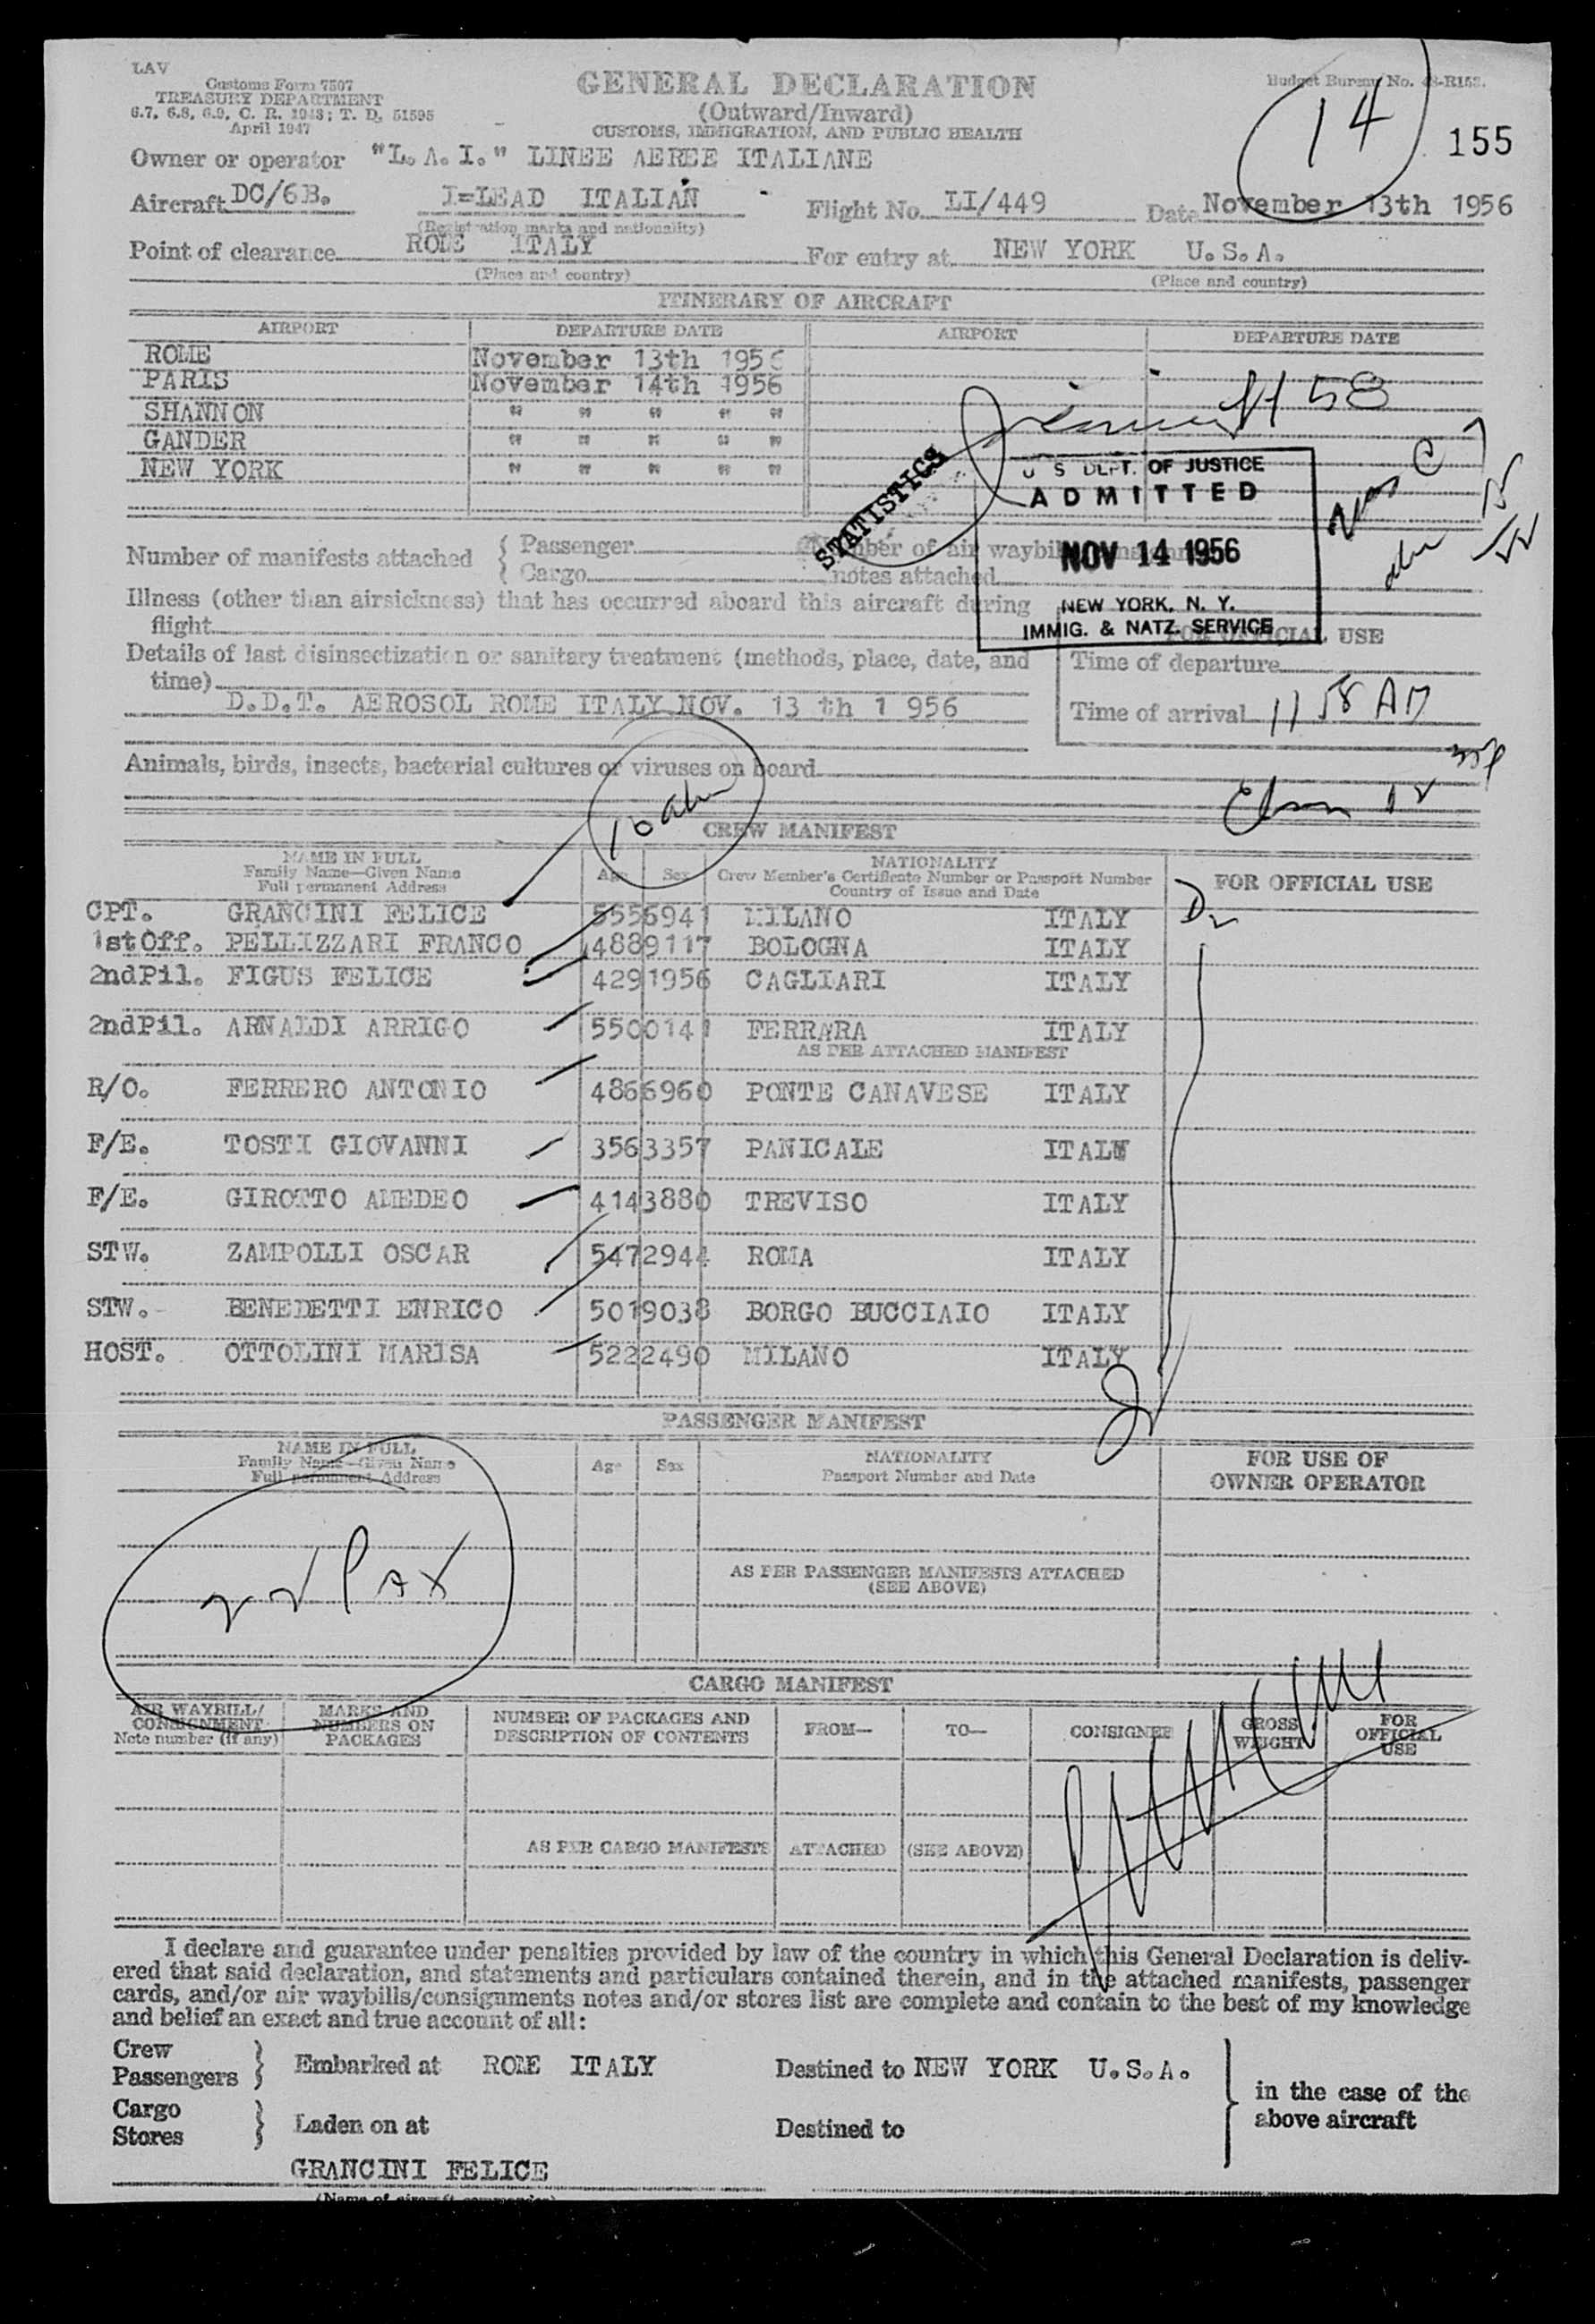 LAV
Customs Form 7507
TREASURY DEPARTMENT
6.7, 6.8, 6.9, C. R. 1943; T. D. 51595
April 1947
GENERAL DECLARATION
(Outward/Inward)
CUSTOMS, IMMIGRATION, AND PUBLIC HEALTH
Budget Bureau No. 48-R153.
14
155
Owner or operator "L. A. I." LINEE AEREE ITALIANE
Aircraft DC/6B. I=LEAD ITALIAN Flight No. LI/449 Date November 13th 1956
(Registration marks and nationality)
Point of clearance ROME ITALY For entry at NEW YORK U.S.A.
(Place and country) (Place and country)
ITINERARY OF AIRCRAFT
AIRPORT DEPARTURE DATE AIRPORT DEPARTURE DATE
ROME November 13th 1956
PARIS November 14th 1956
SHANNON " " " " "
GANDER " " " " "
NEW YORK " " " " "
STATISTICS
U S DEPT. OF JUSTICE
ADMITTED
NOV 14 1956
NEW YORK, N. Y.
IMMIG. & NATZ. SERVICE
Number of manifests attached { Passenger
Cargo
Number of air waybill
notes attached
Illness (other than airsickness) that has occurred aboard this aircraft during
flight
FOR OFFICIAL USE
Details of last disinsectization or sanitary treatment (methods, place, date, and
time)
D.D.T. AEROSOL ROME ITALY NOV. 13 th 1 956
Time of departure
Time of arrival 11 58 AM
Animals, birds, insects, bacterial cultures or viruses on board
CREW MANIFEST
NAME IN FULL
Family Name—Given Name
Full permanent Address
Age Sex
NATIONALITY
Crew Member's Certificate Number or Passport Number
Country of Issue and Date
FOR OFFICIAL USE
CPT. GRANCINI FELICE 5556941 MILANO ITALY
1st Off. PELLIZZARI FRANCO 4889117 BOLOGNA ITALY
2ndPil. FIGUS FELICE 4291956 CAGLIARI ITALY
2ndPil. ARNALDI ARRIGO 5500141 FERRARA ITALY
AS PER ATTACHED MANIFEST
R/O. FERRERO ANTONIO 4866960 PONTE CANAVESE ITALY
F/E. TOSTI GIOVANNI 3563357 PANICALE ITALY
F/E. GIROTTO AMEDEO 4143880 TREVISO ITALY
STW. ZAMPOLLI OSCAR 5472944 ROMA ITALY
STW. BENEDETTI ENRICO 5019038 BORGO BUCCIAIO ITALY
HOST. OTTOLINI MARISA 5222490 MILANO ITALY
PASSENGER MANIFEST
NAME IN FULL
Family Name—Given Name
Full permanent Address
Age Sex
NATIONALITY
Passport Number and Date
FOR USE OF
OWNER OPERATOR
Pax
AS PER PASSENGER MANIFESTS ATTACHED
(SEE ABOVE)
CARGO MANIFEST
AIR WAYBILL/
CONSIGNMENT
Note number (if any)
MARKS AND
NUMBERS ON
PACKAGES
NUMBER OF PACKAGES AND
DESCRIPTION OF CONTENTS
FROM— TO— CONSIGNEE
GROSS
WEIGHT
FOR
OFFICIAL
USE
AS PER CARGO MANIFESTS ATTACHED (SEE ABOVE)
I declare and guarantee under penalties provided by law of the country in which this General Declaration is deliv-
ered that said declaration, and statements and particulars contained therein, and in the attached manifests, passenger
cards, and/or air waybills/consignments notes and/or stores list are complete and contain to the best of my knowledge
and belief an exact and true account of all:
Crew
Passengers } Embarked at ROME ITALY Destined to NEW YORK U.S.A.
Cargo
Stores } Laden on at Destined to
in the case of the
above aircraft
GRANCINI FELICE
(Name of aircraft commander)